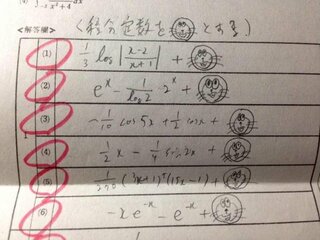 3 x²+4 dx
(積分定数を とする)
<解答欄>
(1) 1/3 log|x-2/x+1| +
(2) eˣ - 1/log2 · 2ˣ +
(3) -1/10 cos5x + 1/2 cosx +
(4) 1/2 x - 1/4 sin2x +
(5) 1/270 (3x+1)⁵(15x-1) +
(6) -xe⁻ˣ - e⁻ˣ +